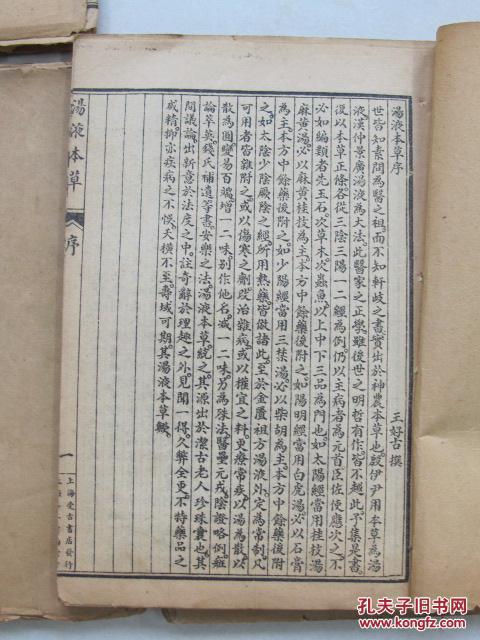 湯液本草序
王好古撰
世皆知素問為醫之祖。而不知軒岐之書。實出於神農本草也。殷伊尹用本草為湯
液。漢仲景廣湯液為大法。此醫家之正學。雖後世之明哲有作。皆不越此。予集是書。
復以本草正條。各從三陰三陽十二經為例。仍以主病者為元首。臣佐使應次之。不
必如編類者。先玉石。次草木。次蟲魚。以上中下三品為門也。如太陽經當用桂枝湯
麻黃湯。必以麻黃桂枝為主。本方中餘藥後附之。如陽明經當用白虎湯。必以石膏
為主。本方中餘藥後附之。如少陽經當用三禁湯。必以柴胡為主。本方中餘藥後附
之。如太陰少陰厥陰之經。所用熱藥。皆倣諸此。至於金匱祖方。湯液外定為常制。凡
可用者。皆雜附之。或以傷寒之劑。改治雜病。或以權宜之料。更療常疾。以湯為散。以
散為圓。變易百端。增一二味。別作他名。減一二味。另為殊法。醫壘元戎。陰證略例。癍
論萃英。錢氏補遺等書。安樂之法。湯液本草。統之。其源出於潔古老人珍珠囊也。其
間議論。出新意於法度之中。註奇辭於理趣之外。見聞一得。久弊全更。不特藥品之
咸精。抑亦疾病之不悞。夭橫不至。壽域可期。其湯液本草歟。
湯液本草
序
一
上海受古書店發行
孔夫子旧书网
KONGFZ.COM